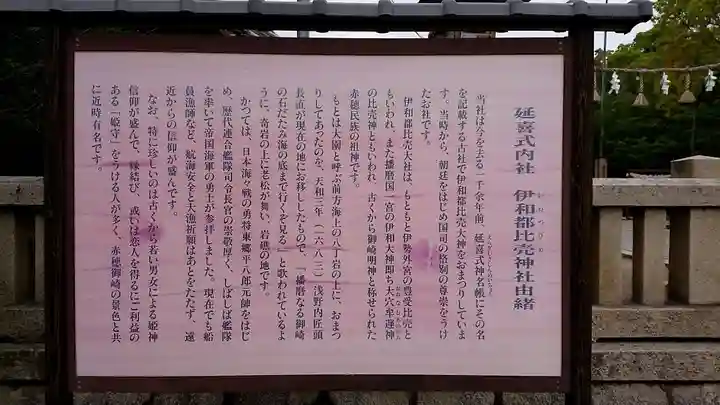 延喜式内社　伊和都比売神社由緒
当社は今を去る一千余年前、延喜式神名帳にその名
を記載する古社で伊和都比売大神をおまつりしていま
す。当時から、朝廷をはじめ国司の格別の尊崇をうけ
たお社です。
伊和都比売大社は、もともと伊勢外宮の豊受比売と
もいわれ、また播磨国一宮の伊和大神即ち大穴牟遅神
の比売神ともいわれ、古くから御崎明神と称せられた
赤穂民族の祖神です。
もとは大園と呼ぶ前方海上の八丁岩の上に、おまつ
りしてあったのを、天和三年（一六八三）浅野内匠頭
長直が現在の地にお移ししたもので、「播磨なる御崎
の石だたみ海の底まで行くぞ見る」と歌われているよ
うに、奇岩の上に老松が舞い、岩礁の地です。
かつては、日本海々戦の勇将東郷平八郎元帥をはじ
め、歴代連合艦隊司令長官の崇敬厚く、しばしば艦隊
を率いて帝国海軍の勇士が参拝しました。現在でも船
員漁師など、航海安全と大漁祈願はあとをたたず、遠
近からの信仰が盛んです。
なお、特に珍しいのは古くから若い男女による姫神
信仰が盛んで、縁結び、或いは恋人を得るに御利益の
ある「姫守」をうける人が多く、赤穂御崎の景色と共
に近時有名です。